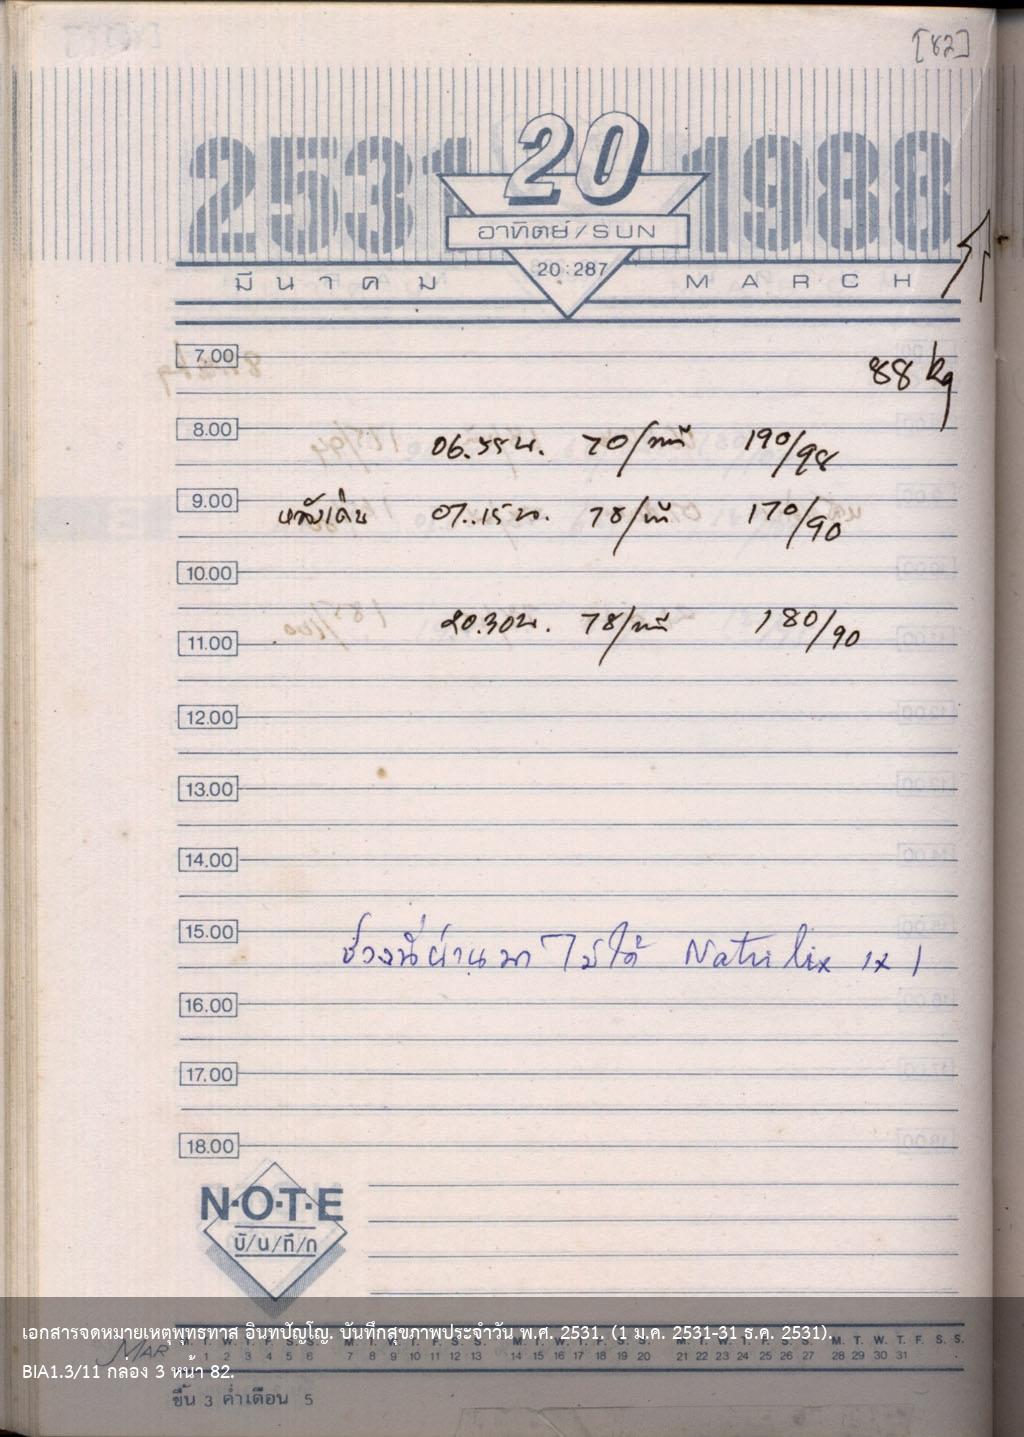 [82]
2531 20 1988
อาทิตย์/SUN
20:287
มีนาคม MARCH
7.00
88 kg
8.00
06.55 น. 70/นาที 190/98
9.00
หลังเดิน 07.15 น. 78/นาที 170/90
10.00
20.30 น. 78/นาที 180/90
11.00
12.00
13.00
14.00
15.00
ช่วงนี้ผ่านมา ไม่ได้ Natrilix 1x1
16.00
17.00
18.00
N·O·T·E
บั/น/ทึ/ก
เอกสารจดหมายเหตุพุทธทาส อินทปัญโญ. บันทึกสุขภาพประจำวัน พ.ศ. 2531. (1 ม.ค. 2531-31 ธ.ค. 2531).
MAR M. T. W. T. F. S. S. M. T. W. T. F. S. S. M. T. W. T. F. S. S. M. T. W. T. F. S. S. M. T. W. T. F. S. S.
1 2 3 4 5 6 7 8 9 10 11 12 13 14 15 16 17 18 19 20 21 22 23 24 25 26 27 28 29 30 31
BIA1.3/11 กล่อง 3 หน้า 82.
ขึ้น 3 ค่ำเดือน 5